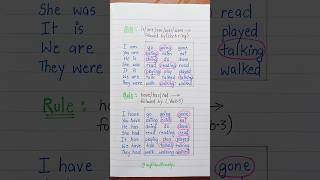 She was
It is
We are
They were
Rule:
I have
is/am/are/was/were →
followed by (Verb+ing)
I am go going gone
You are eating eaten eat
He is doing do done
She was read reading read
It is playing play played
We are talk talked talking
They were walk walking walked
Rule: have/has/had →
followed by (Verb-3)
I have go going gone
You have eating eaten eat
He has doing do done
She had read reading read
It has playing play played
We have talk talking talked
They had walk walking walked
read
played
talking
walked
gone